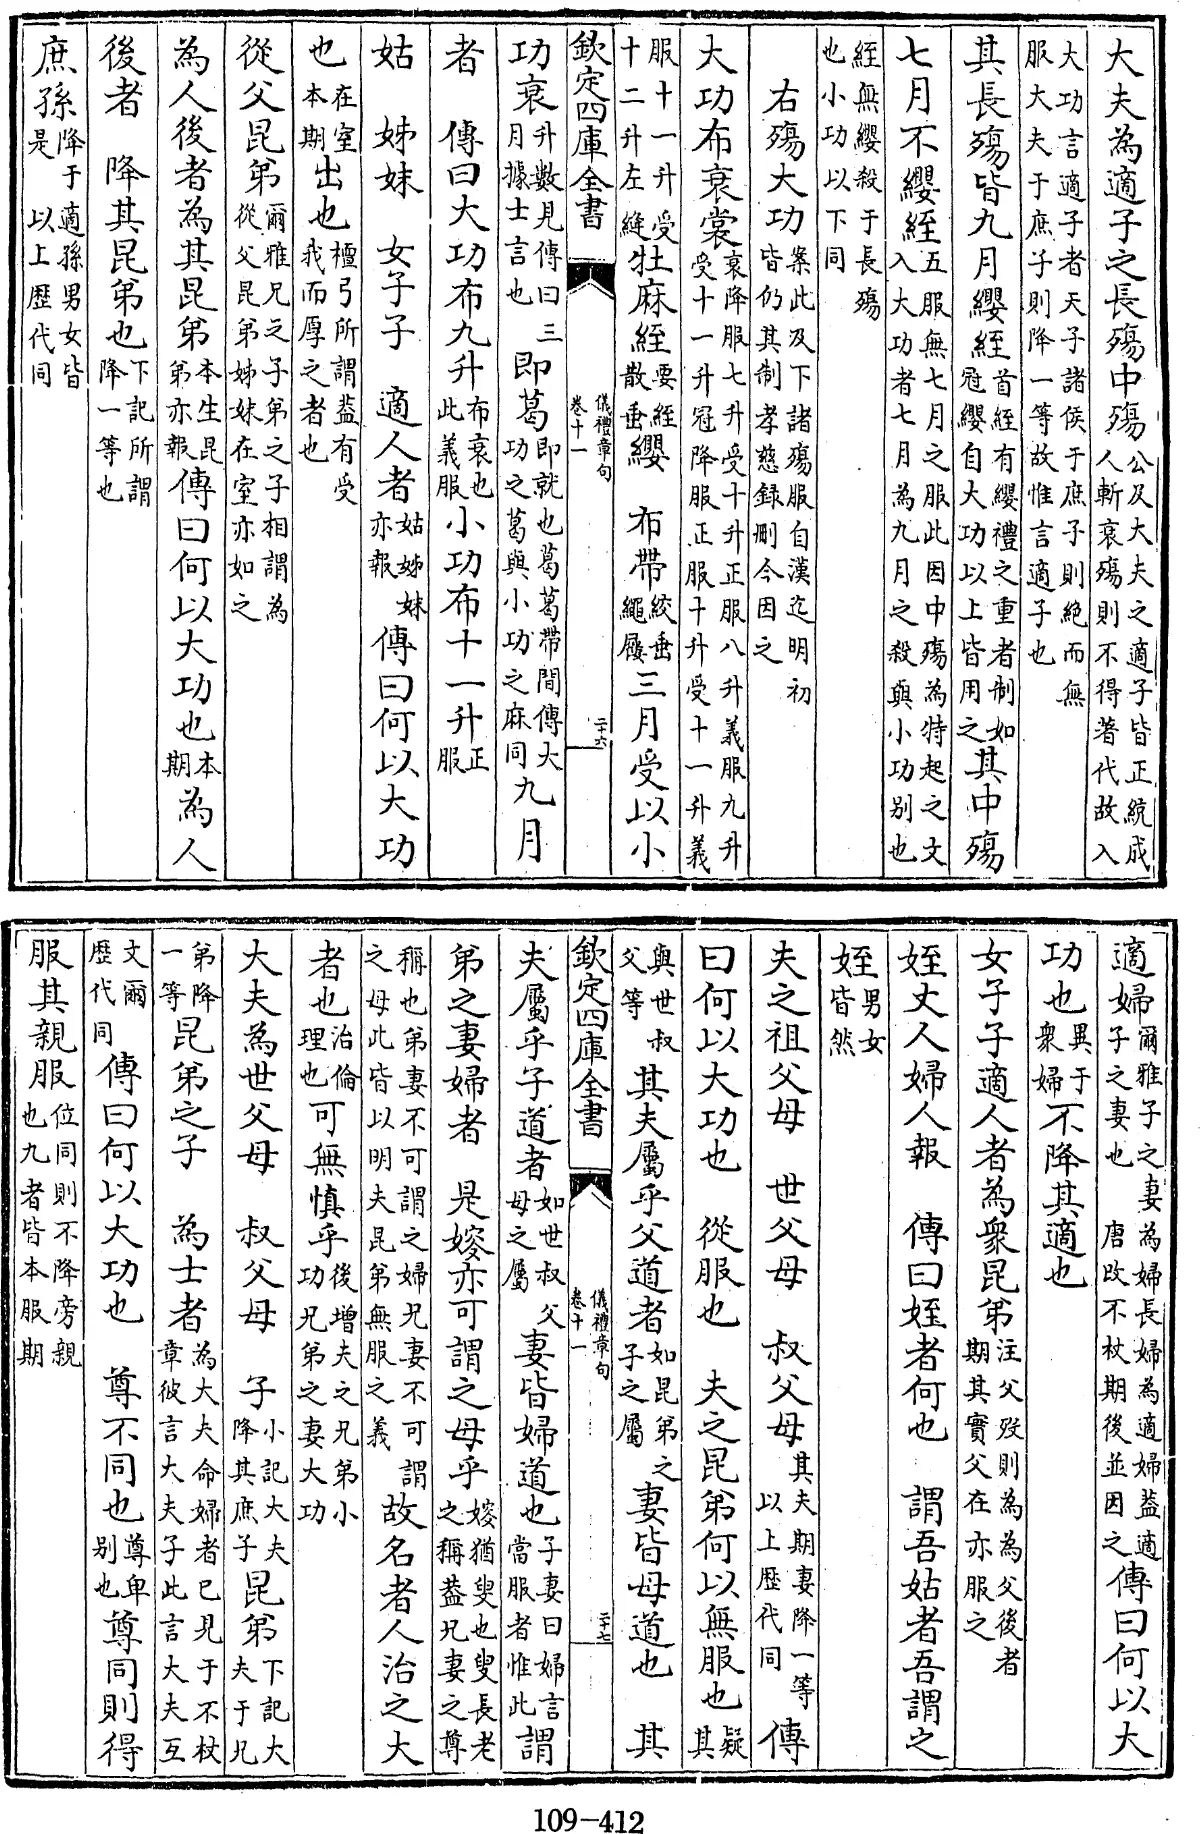 大夫為適子之長殤中殤公及大夫之適子皆正統成人斬衰殤則不得著代故入
大功言適子者天子諸侯于庶子則絶而無服大夫于庶子則降一等故惟言適子也
其長殤皆九月纓絰首絰有纓禮之重者制如冠纓自大功以上皆用之其中殤
七月不纓絰五服無七月之服此因中殤為特起之文入大功者七月為九月之殺與小功别也
絰無纓殺于長殤也小功以下同
右殤大功案此及下諸殤服自漢迄明初皆仍其制孝慈録刪今因之
大功布衰裳衰降服七升受十升正服八升義服九升受十一升冠降服正服十升受十一升義
服十一升受十二升左縫牡麻絰要絰散垂纓 布帶絞垂繩屨三月受以小
欽定四庫全書 儀禮章句 卷十一 二十六
功衰升數見傳曰三月據士言也即葛即就也葛葛帶間傳大功之葛與小功之麻同九月
者 傳曰大功布九升布衰也此義服小功布十一升正服
姑 姊妹 女子子 適人者姑姊妹亦報傳曰何以大功
也在室本期出也檀弓所謂葢有受我而厚之者也
從父昆弟爾雅兄之子弟之子相謂為從父昆弟姊妹在室亦如之
為人後者為其昆弟本生昆弟亦報傳曰何以大功也本期為人
後者 降其昆弟也下記所謂降一等也
庶孫降于適孫男女皆是 以上歷代同
適婦爾雅子之妻為婦長婦為適婦葢適子之妻也 唐改不杖期後並因之傳曰何以大
功也異于衆婦不降其適也
女子子適人者為衆昆弟注父歿則為為父後者期其實父在亦服之
姪丈人婦人報 傳曰姪者何也 謂吾姑者吾謂之
姪男女皆然
夫之祖父母 世父母 叔父母其夫期妻降一等以上歷代同傳
曰何以大功也 從服也 夫之昆弟何以無服也疑其
與世叔父等 其夫屬乎父道者如昆弟之子之屬妻皆母道也 其
欽定四庫全書 儀禮章句 卷十一 二十七
夫屬乎子道者如世叔父母之屬妻皆婦道也子妻曰婦言當服者惟此謂
弟之妻婦者 是嫂亦可謂之母乎嫂猶叟也叟長老之稱葢兄妻之尊
稱也弟妻不可謂之婦兄妻不可謂之母此皆以明夫昆弟無服之義故名者人治之大
者也治倫理也可無慎乎後增夫之兄弟小功兄弟之妻大功
大夫為世父母 叔父母 子小記大夫降其庶子昆弟下記大夫于兄
弟降一等昆弟之子 為士者為大夫命婦者已見于不杖章彼言大夫子此言大夫互
文爾歷代同傳曰何以大功也 尊不同也尊卑别也尊同則得
服其親服位同則不降旁親也九者皆本服期
109-412